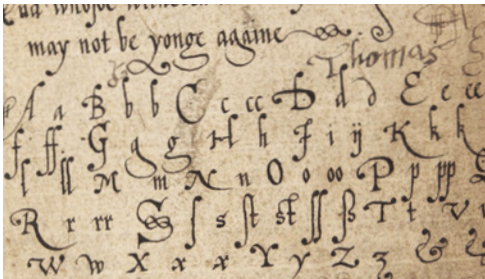 may not be yonge againe
Thomas
A a B b b C c cc D d d E e ee
f ff G g g H h I i ij K k k
l ll M m N n O o oo P p pp
R r rr S ſ s ſt st ſſ ß T t V
W w X x x Y y Z z &